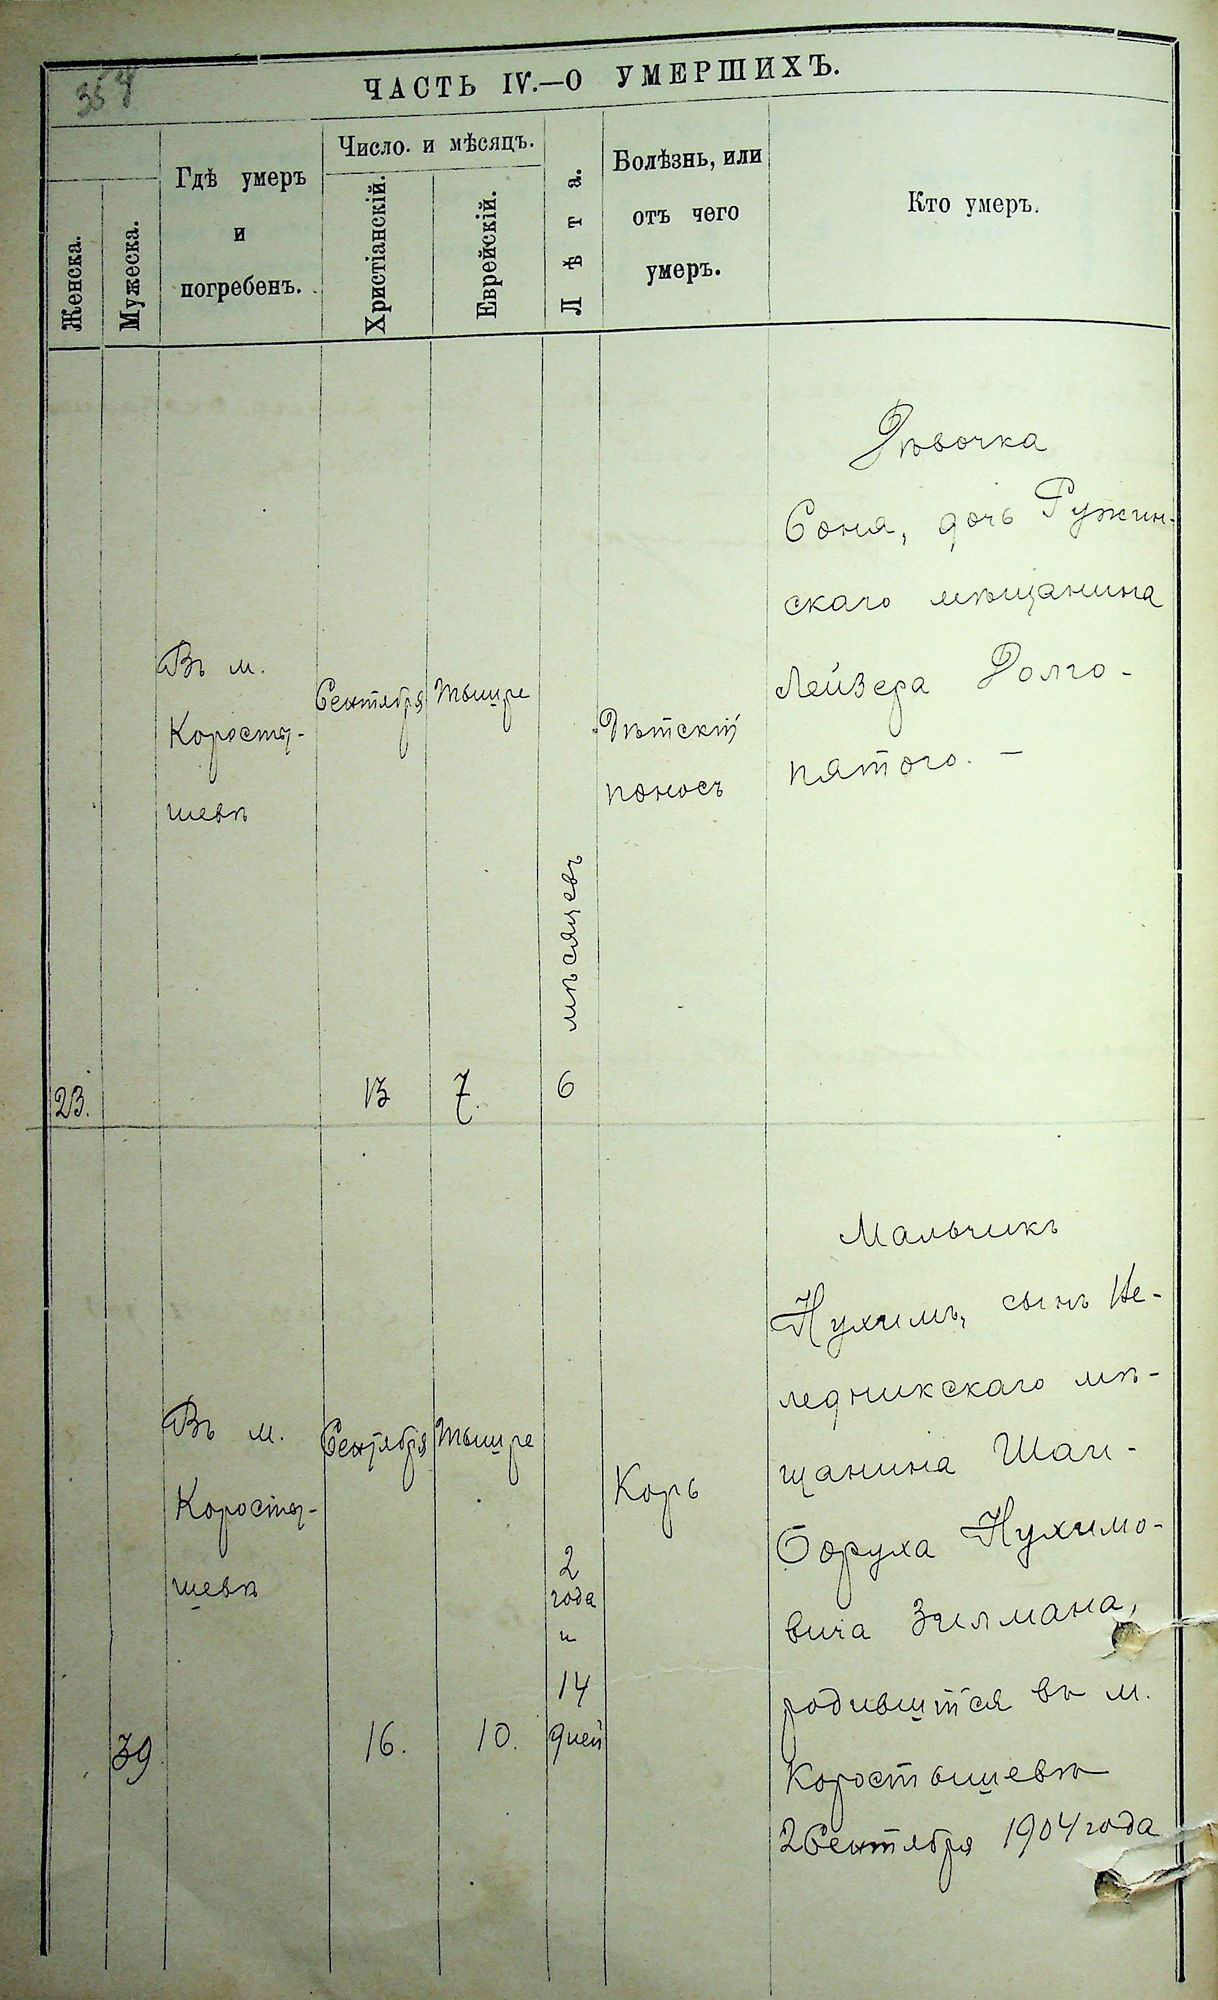 354
ЧАСТЬ IV.—О УМЕРШИХЪ.
Женска.
Мужеска.
Гдѣ умеръ
и
погребенъ.
Число. и мѣсяцъ.
Христіанскій.
Еврейскій.
Лѣта.
Болѣзнь, или
отъ чего
умеръ.
Кто умеръ.
23.
Въ м.
Коросты-
шевѣ
Сентября
13
Тышре
7.
6 мѣсяцевъ
Дѣтскій
поносъ
Дѣвочка
Соня, дочь Ружин-
скаго мѣщанина
Лейзера Долго-
пятого. —
39
Въ м.
Коросты-
шевѣ
Сентября
16.
Тышре
10.
2
года
и
14
дней
Корь
Мальчикъ
Нухимъ, сынъ Не-
ледникскаго мѣ-
щанина Шаи-
Боруха Нухимо-
вича Зилмана,
родившійся въ м.
Коростышевѣ
2 Сентября 1904 года